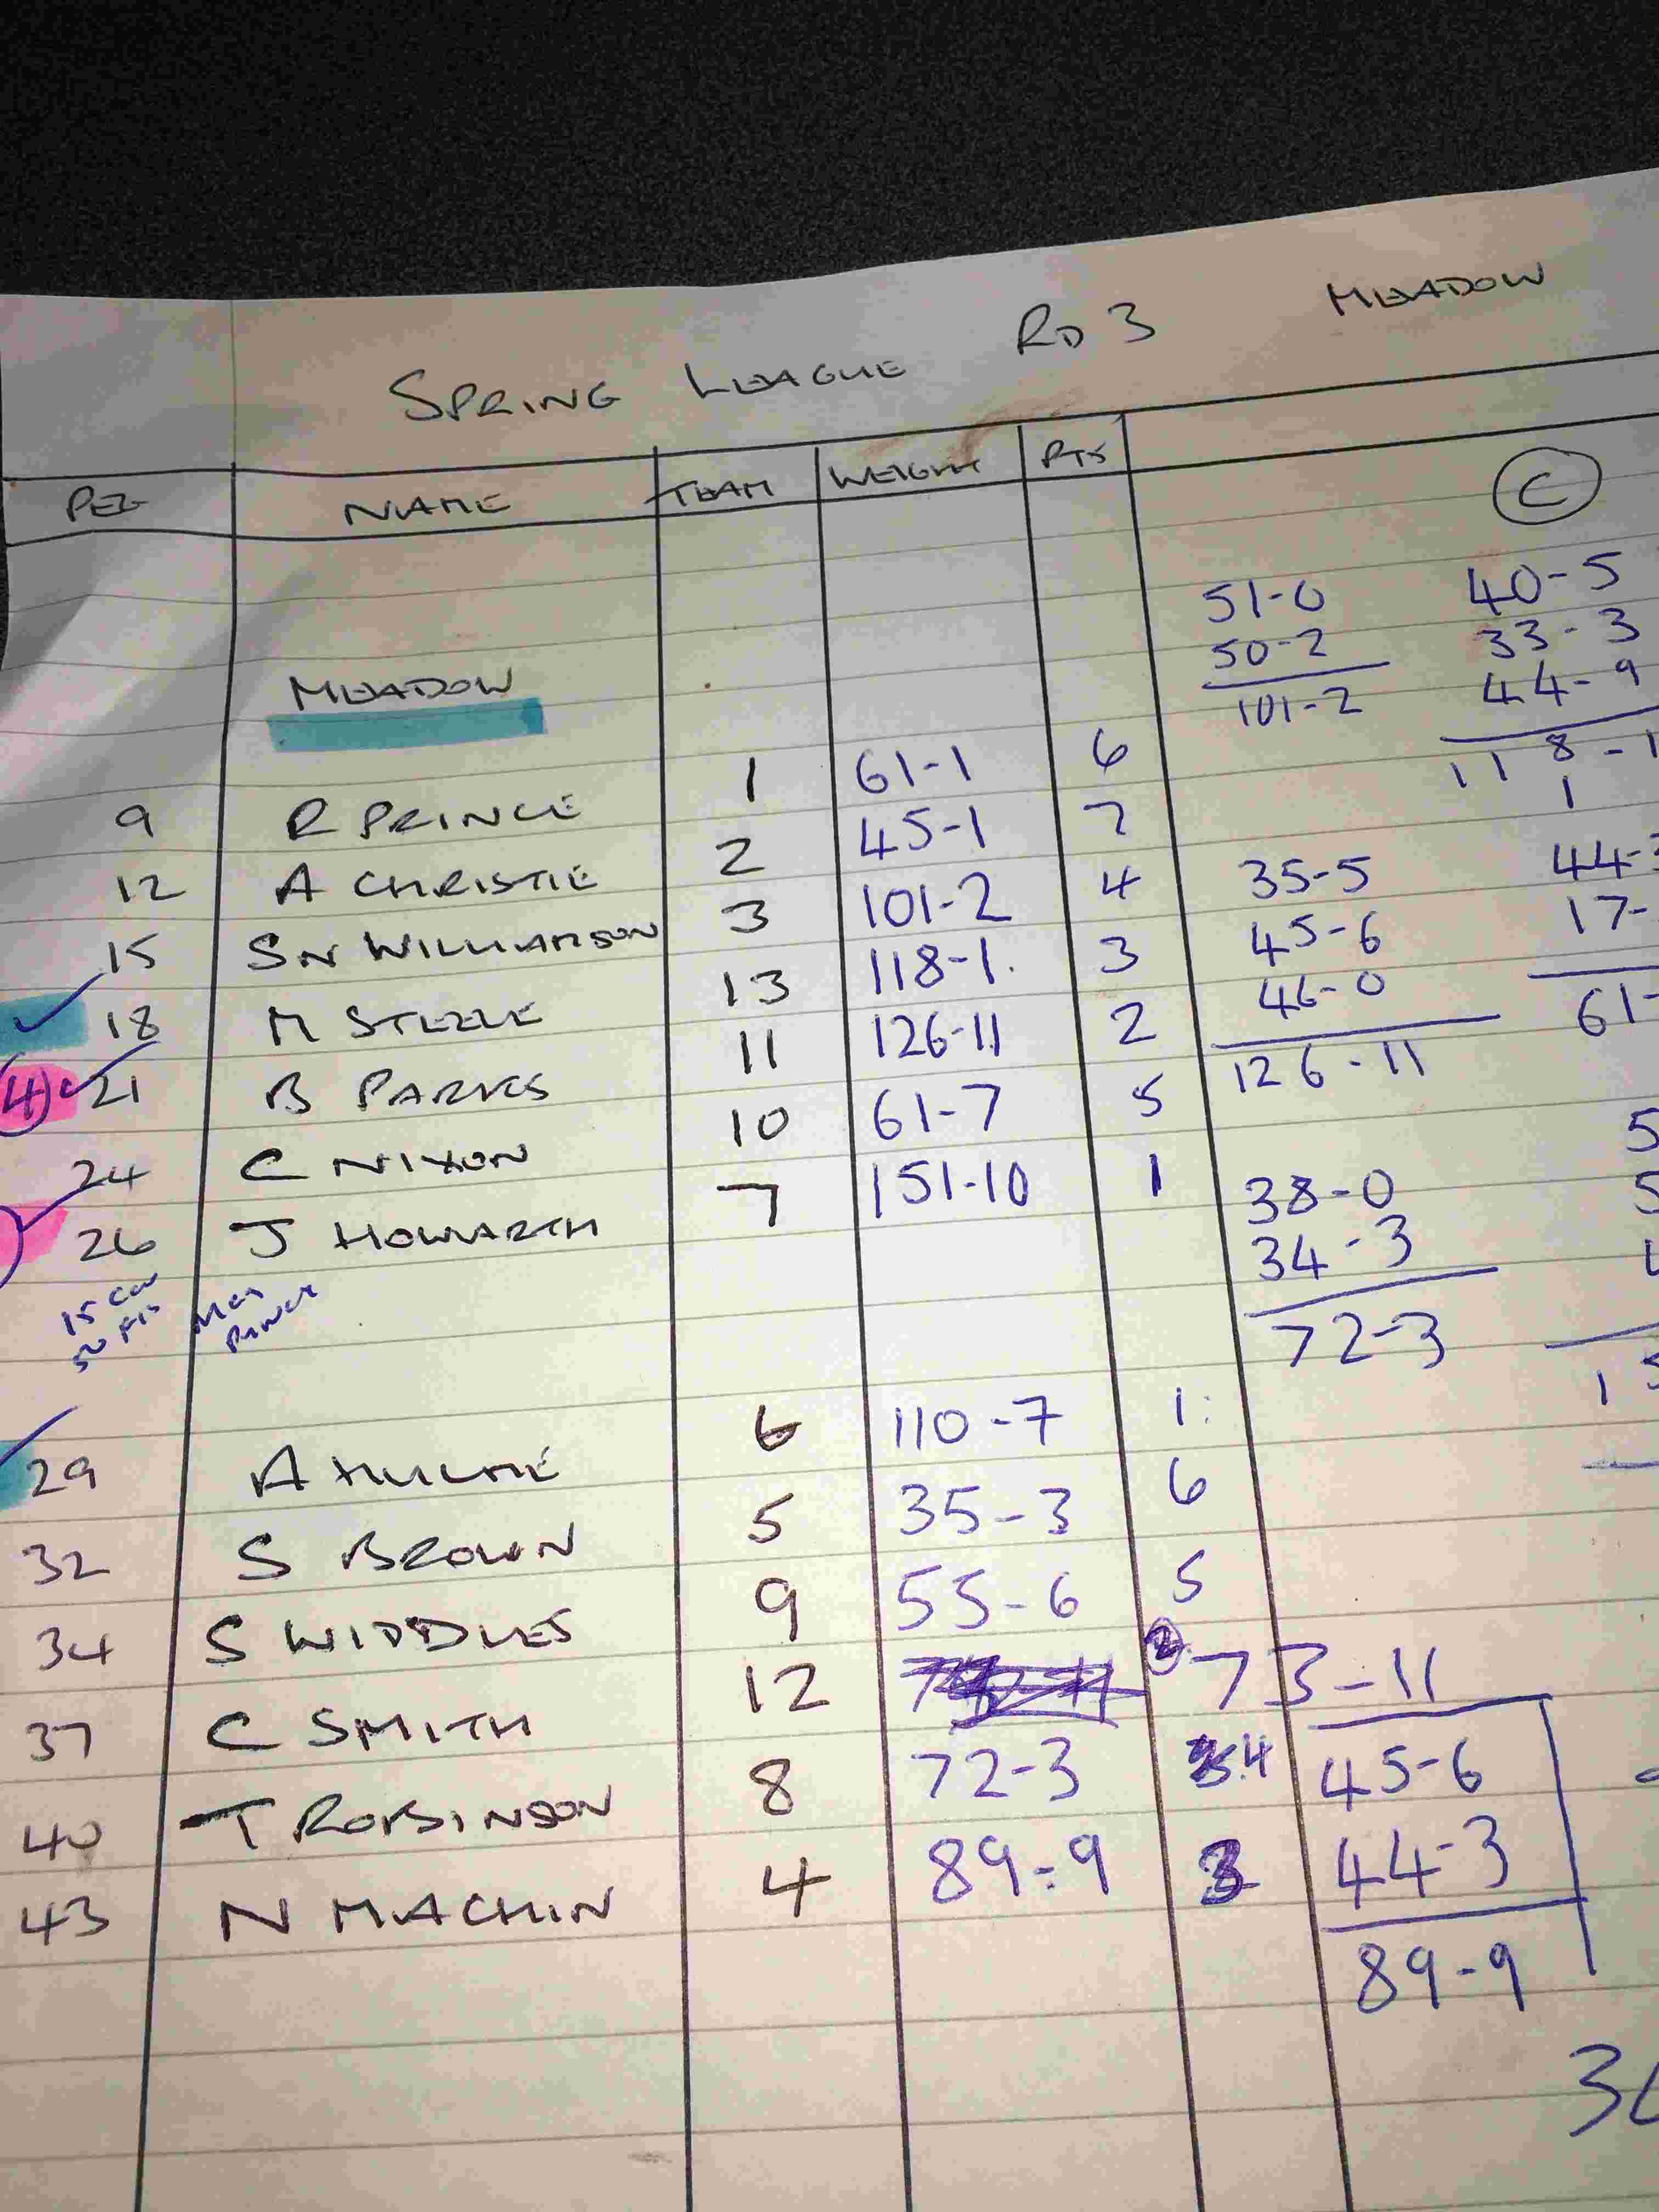 SPRING LEAGUE RD 3 MEADOW
PEG NAME TEAM WEIGHT PTS
C
51-0 40-5
50-2 33-3
101-2 44-9
118-1
1
MEADOW
9 R PRINCE 1 61-1 6
12 A CHRISTIE 2 45-1 7
15 SN WILLIAMSON 3 101-2 4
18 M STEELE 13 118-1 3
4 21 B PARKES 11 126-11 2
24 C NIXON 10 61-7 5
26 J HOWARTH 7 151-10 1
35-5 44-
45-6 17-
46-0 61-
126-11
38-0
34-3
72-3
15
29 A HULME 6 110-7 1
32 S BROWN 5 35-3 6
34 S WIDDLES 9 55-6 5
37 C SMITH 12 2 73-11
40 T ROBINSON 8 72-3 4 45-6
43 N MACHIN 4 89-9 3 44-3
89-9